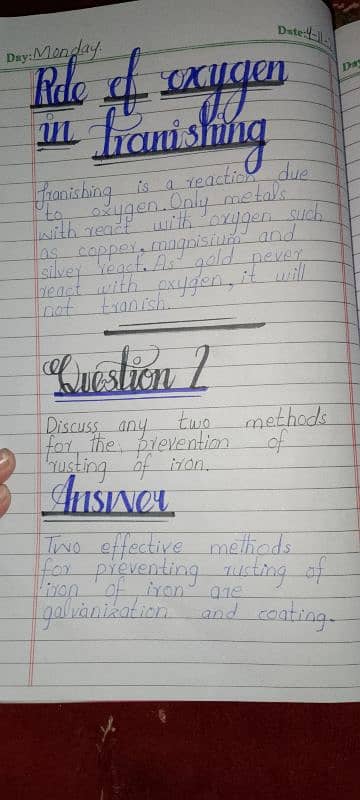 Day: Monday.
Date: 4-11-
Day
Role of oxygen
in tranishing
Tranishing is a reaction due
to oxygen. Only metals
with react with oxygen such
as copper, magnisium and
silver react. As gold never
react with oxygen, it will
not tranish.
Question 2
Discuss any two methods
for the prevention of
rusting of iron.
Answer
Two effective methods
for preventing rusting of
iron of iron are
galvanization and coating.